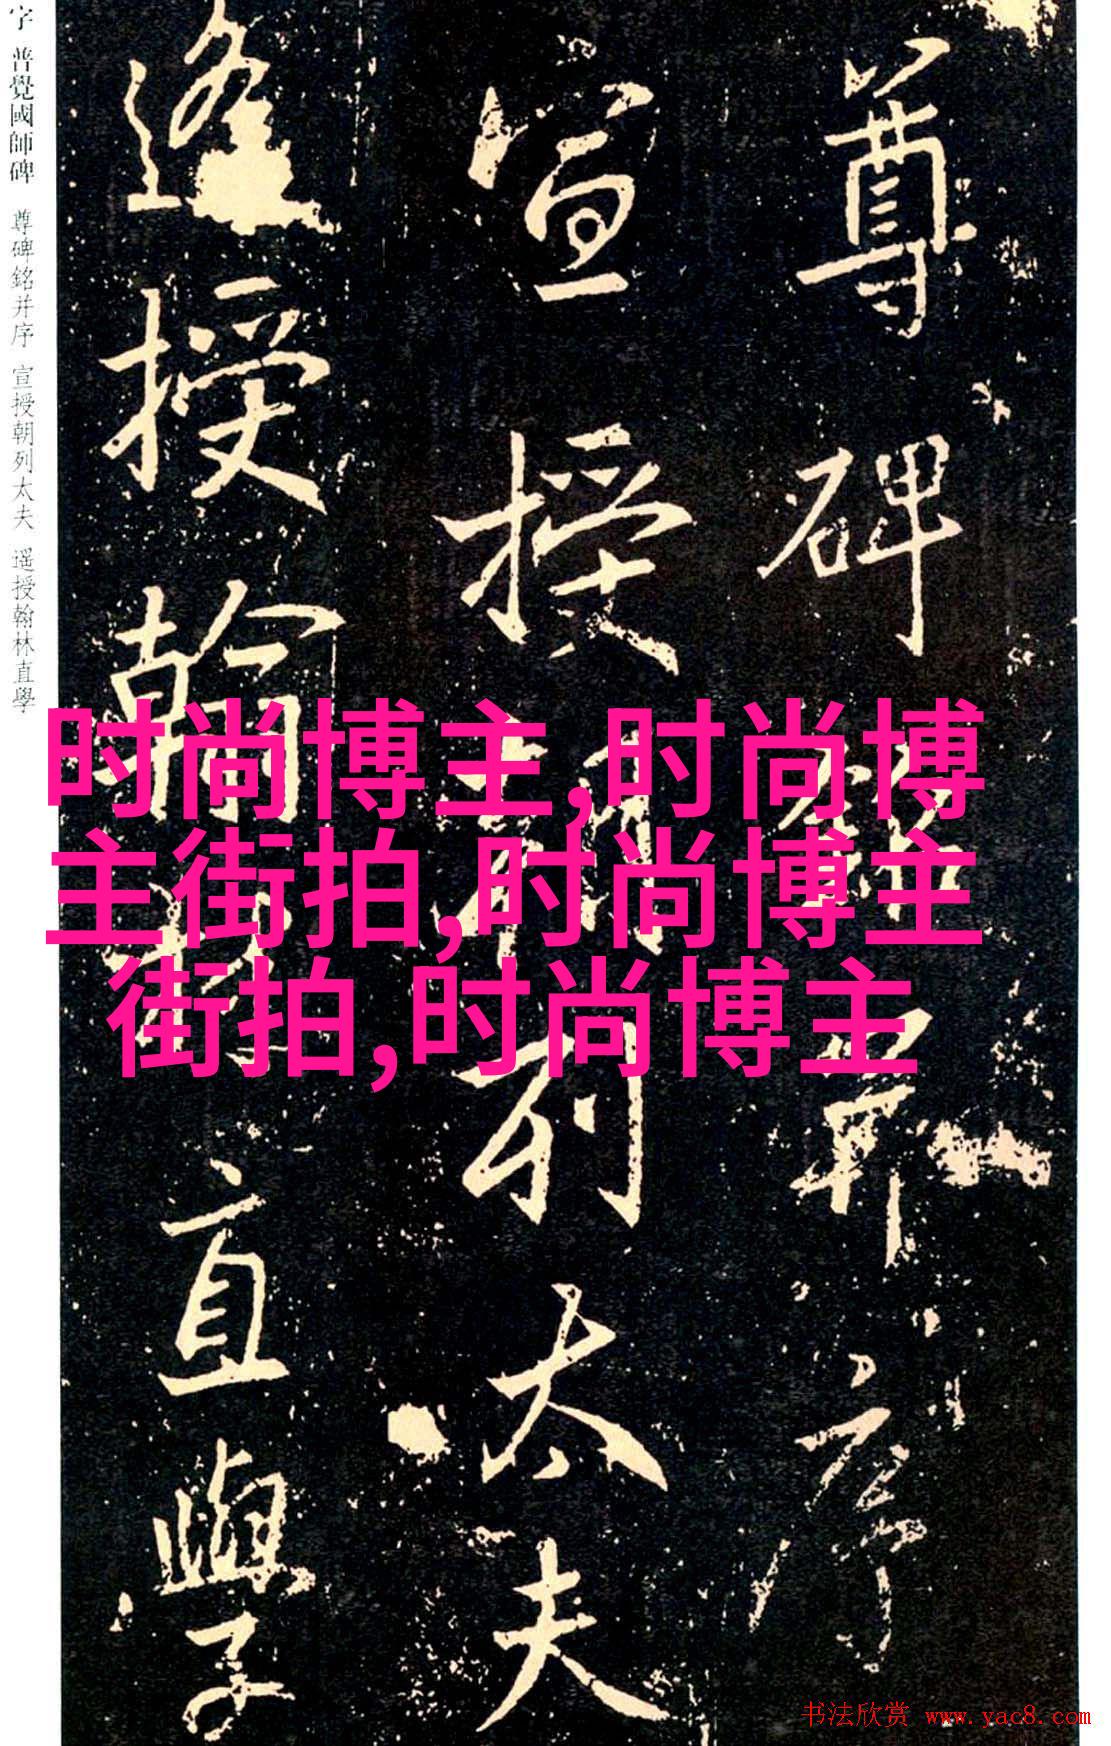 字 普覺國師碑 尊碑銘并序 宣授朝列太夫 遥授翰林直學
尊碑銘并序
宣授朝列太夫
遙授翰林直學
时尚博主,时尚博
主街拍,时尚博主
街拍,时尚博主
书法欣赏 www.yac8.com